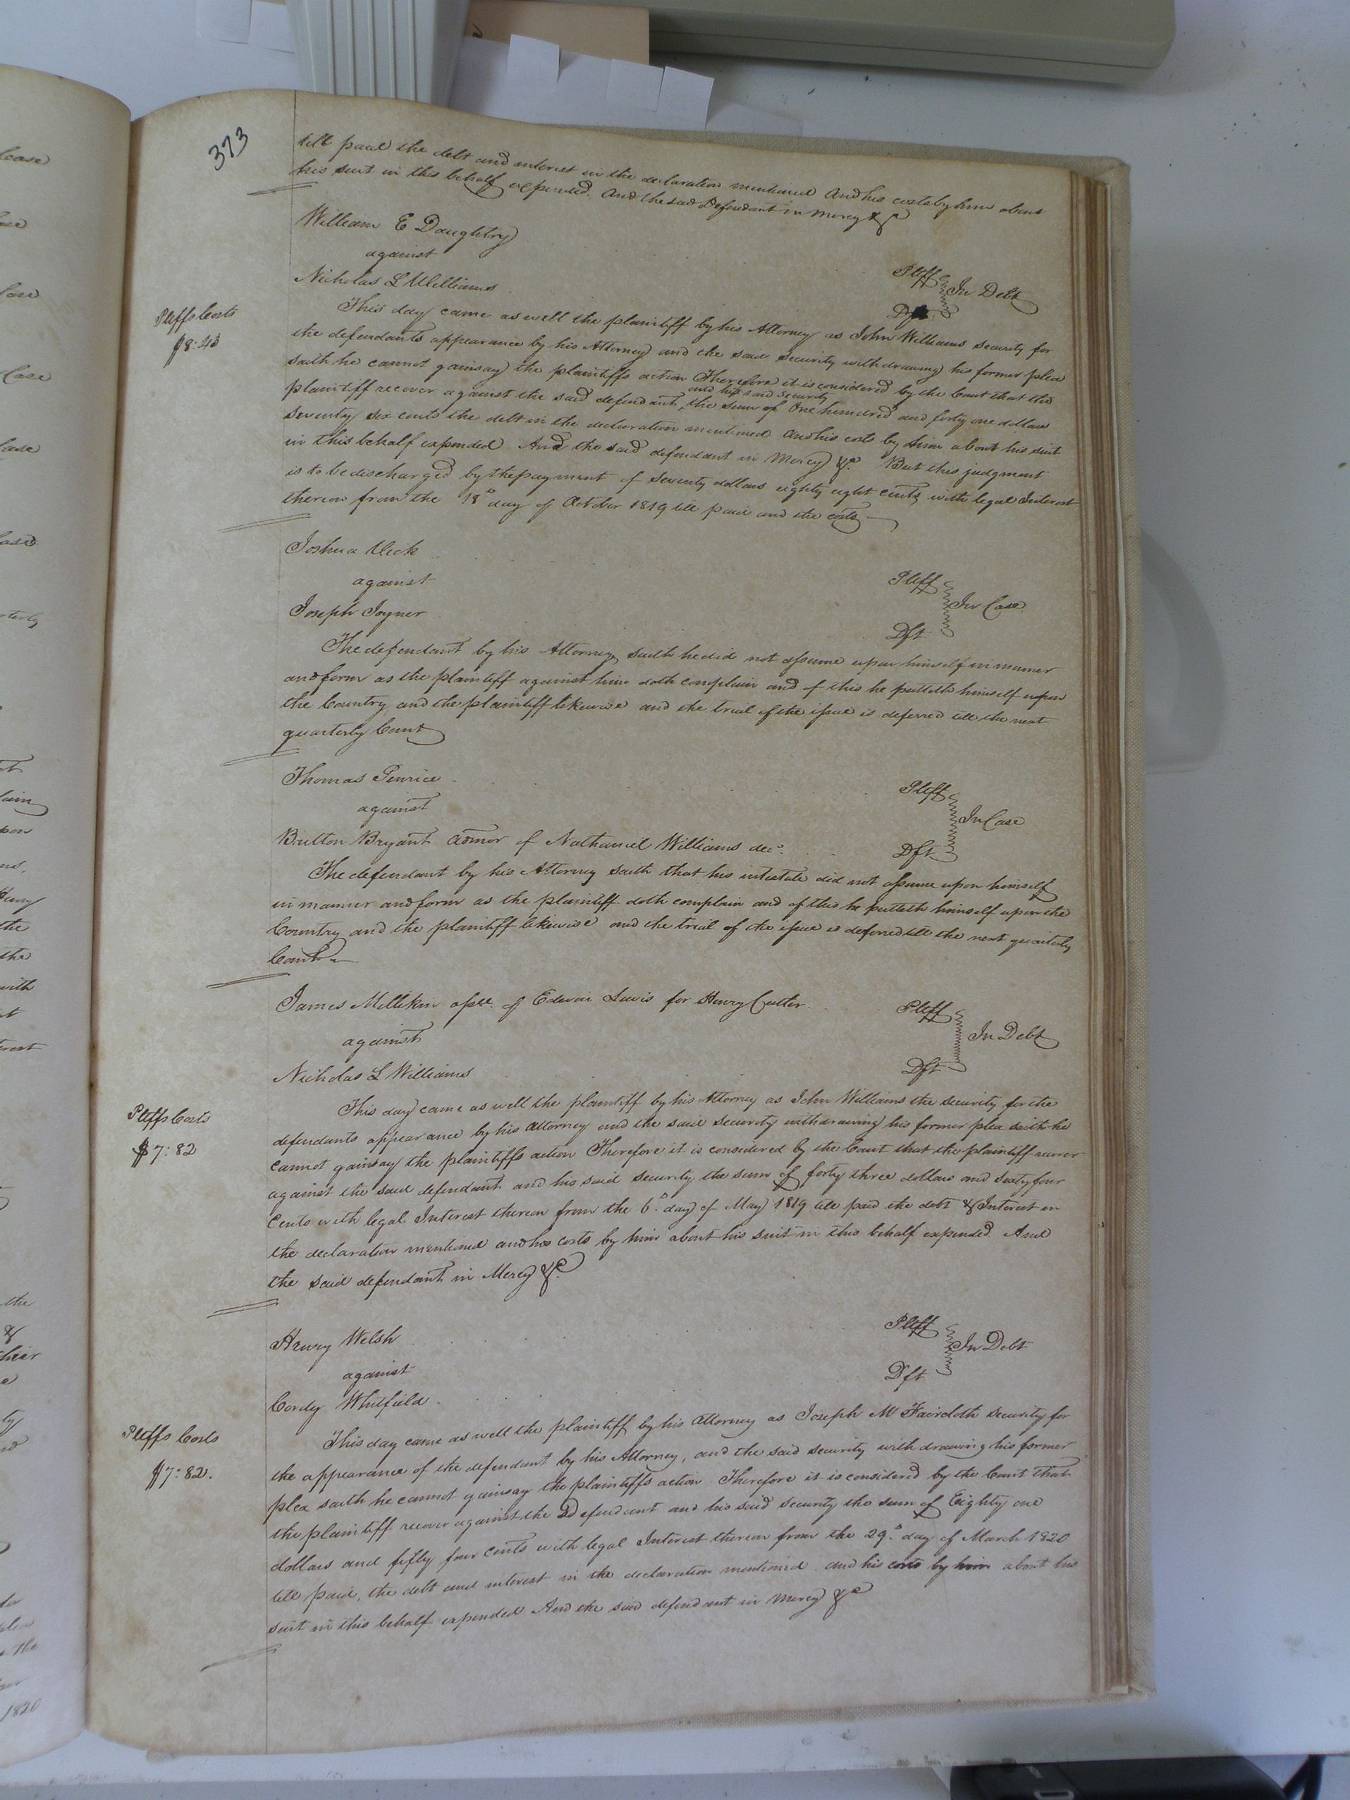 373
till paid the debt and interest in the declaration mentioned And his costs by him about
his suit in this behalf expended. And the said Defendant in Mercy &c
William E Daughtry Pltff
against In Debt
Nicholas L Williams Dft
Pltffs Costs
$8.43
This day came as well the plaintiff by his Attorney as John Williams security for
the defendants appearance by his Attorney and the said security withdrawing his former plea
saith he cannot gainsay the plaintiffs action Therefore it is considered by the Court that the
and his said security
plaintiff recover against the said defendant, the sum of One hundred and forty one dollars
seventy six cents the debt in the declaration mentioned And his costs by him about his suit
in this behalf expended And the said defendant in Mercy &c. But this judgment
is to be discharged by the payment of seventy dollars eighty eight cents with legal Interest
thereon from the 18th day of October 1819 till paid and the costs
Joshua Vick Pltff
against In Case
Joseph Joyner Dft
The defendant by his Attorney saith he did not assume upon himself in manner
and form as the plaintiff against him doth complain and of this he putteth himself upon
the Country and the plaintiff likewise and the trial of the issue is deferred till the next
quarterly Court
Thomas Penrice Pltff
against In Case
Britton Bryant admor of Nathaniel Williams decd. Dft
The defendant by his Attorney saith that his intestate did not assume upon himself
in manner and form as the plaintiff doth complain and of this he putteth himself upon the
Country and the plaintiff likewise and the trial of the issue is deferred till the next quarterly
Court
James Millikin assee. of Edwin Lewis for Henry Cutler Pltff
against In Debt
Nicholas L Williams Dft
This day came as well the plaintiff by his Attorney as John Williams the security for the
Pltffs Costs
$7:82
defendants appearance by his attorney and the said security withdrawing his former plea saith he
cannot gainsay the plaintiffs action Therefore it is considered by the Court that the plaintiff recover
against the said defendant and his said security the sum of forty three dollars and sixty four
Cents with legal Interest thereon from the 6th day of May 1819 till paid the debt & Interest in
the declaration mentioned and his costs by him about his suit in this behalf expended. And
the said defendant in Mercy &c
Henry Welsh Pltff
against In Debt
Cordy Whitfield Dft
This day came as well the plaintiff by his attorney as Joseph M Faircloth security for
Pltffs Costs
$7:82.
the appearance of the defendant by his Attorney, and the said security withdrawing his former
plea saith he cannot gainsay the plaintiffs action Therefore it is considered by the Court that
the plaintiff recover against the Defendant and his said security the sum of Eighty one
dollars and fifty four cents with legal Interest thereon from the 29th day of March 1820
till paid, the debt and interest in the declaration mentioned and his costs by him about his
suit in this behalf expended And the said defendant in Mercy &c